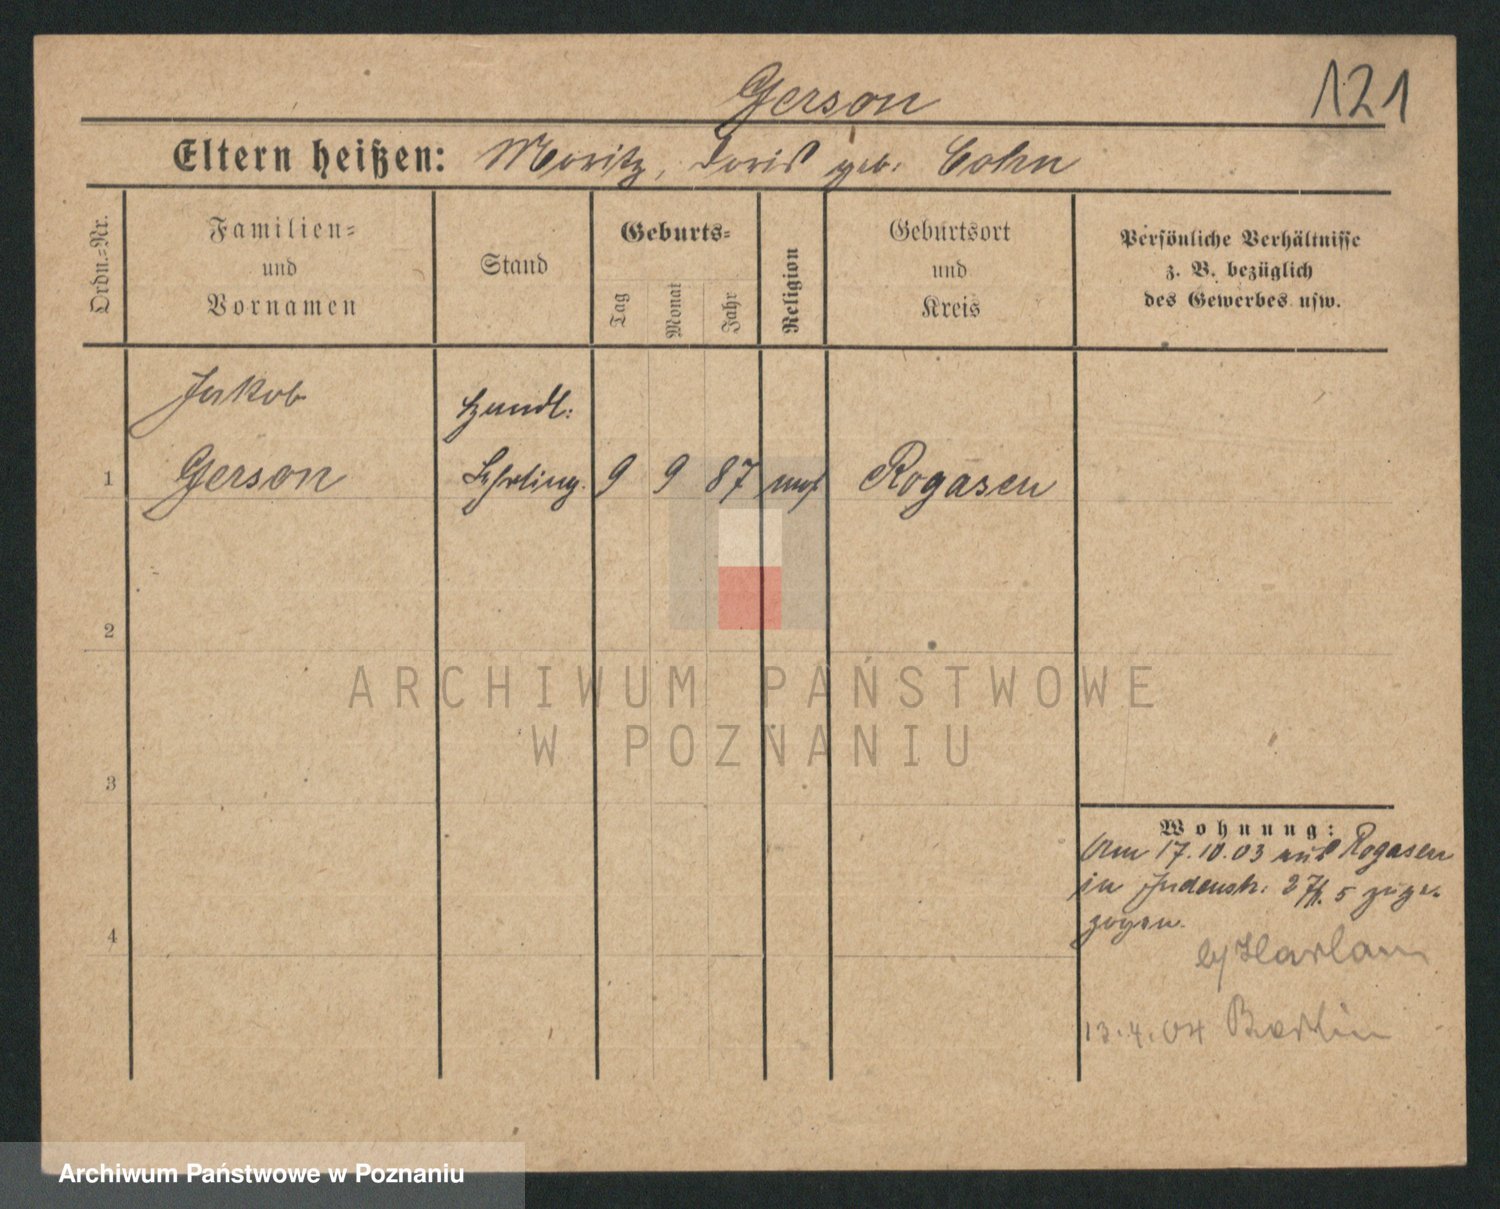 Gerson
121
Eltern heißen: Moritz, Doris geb. Cohn
Ordn.-Nr.
Familien-
und
Vornamen
Stand
Geburts-
Tag
Monat
Jahr
Religion
Geburtsort
und
Kreis
Persönliche Verhältnisse
z. B. bezüglich
des Gewerbes usw.
Jakob
Handl.
1 Gerson Lehrling. 9 9 87 mos Rogasen
2
ARCHIWUM PAŃSTWOWE
W POZNANIU
3
Wohnung:
Am 17.10.03 aus Rogasen
in Judenstr. 27/I. 5 zuge-
zogen.
4
b/ Harlam
13.4.04 Berlin
Archiwum Państwowe w Poznaniu